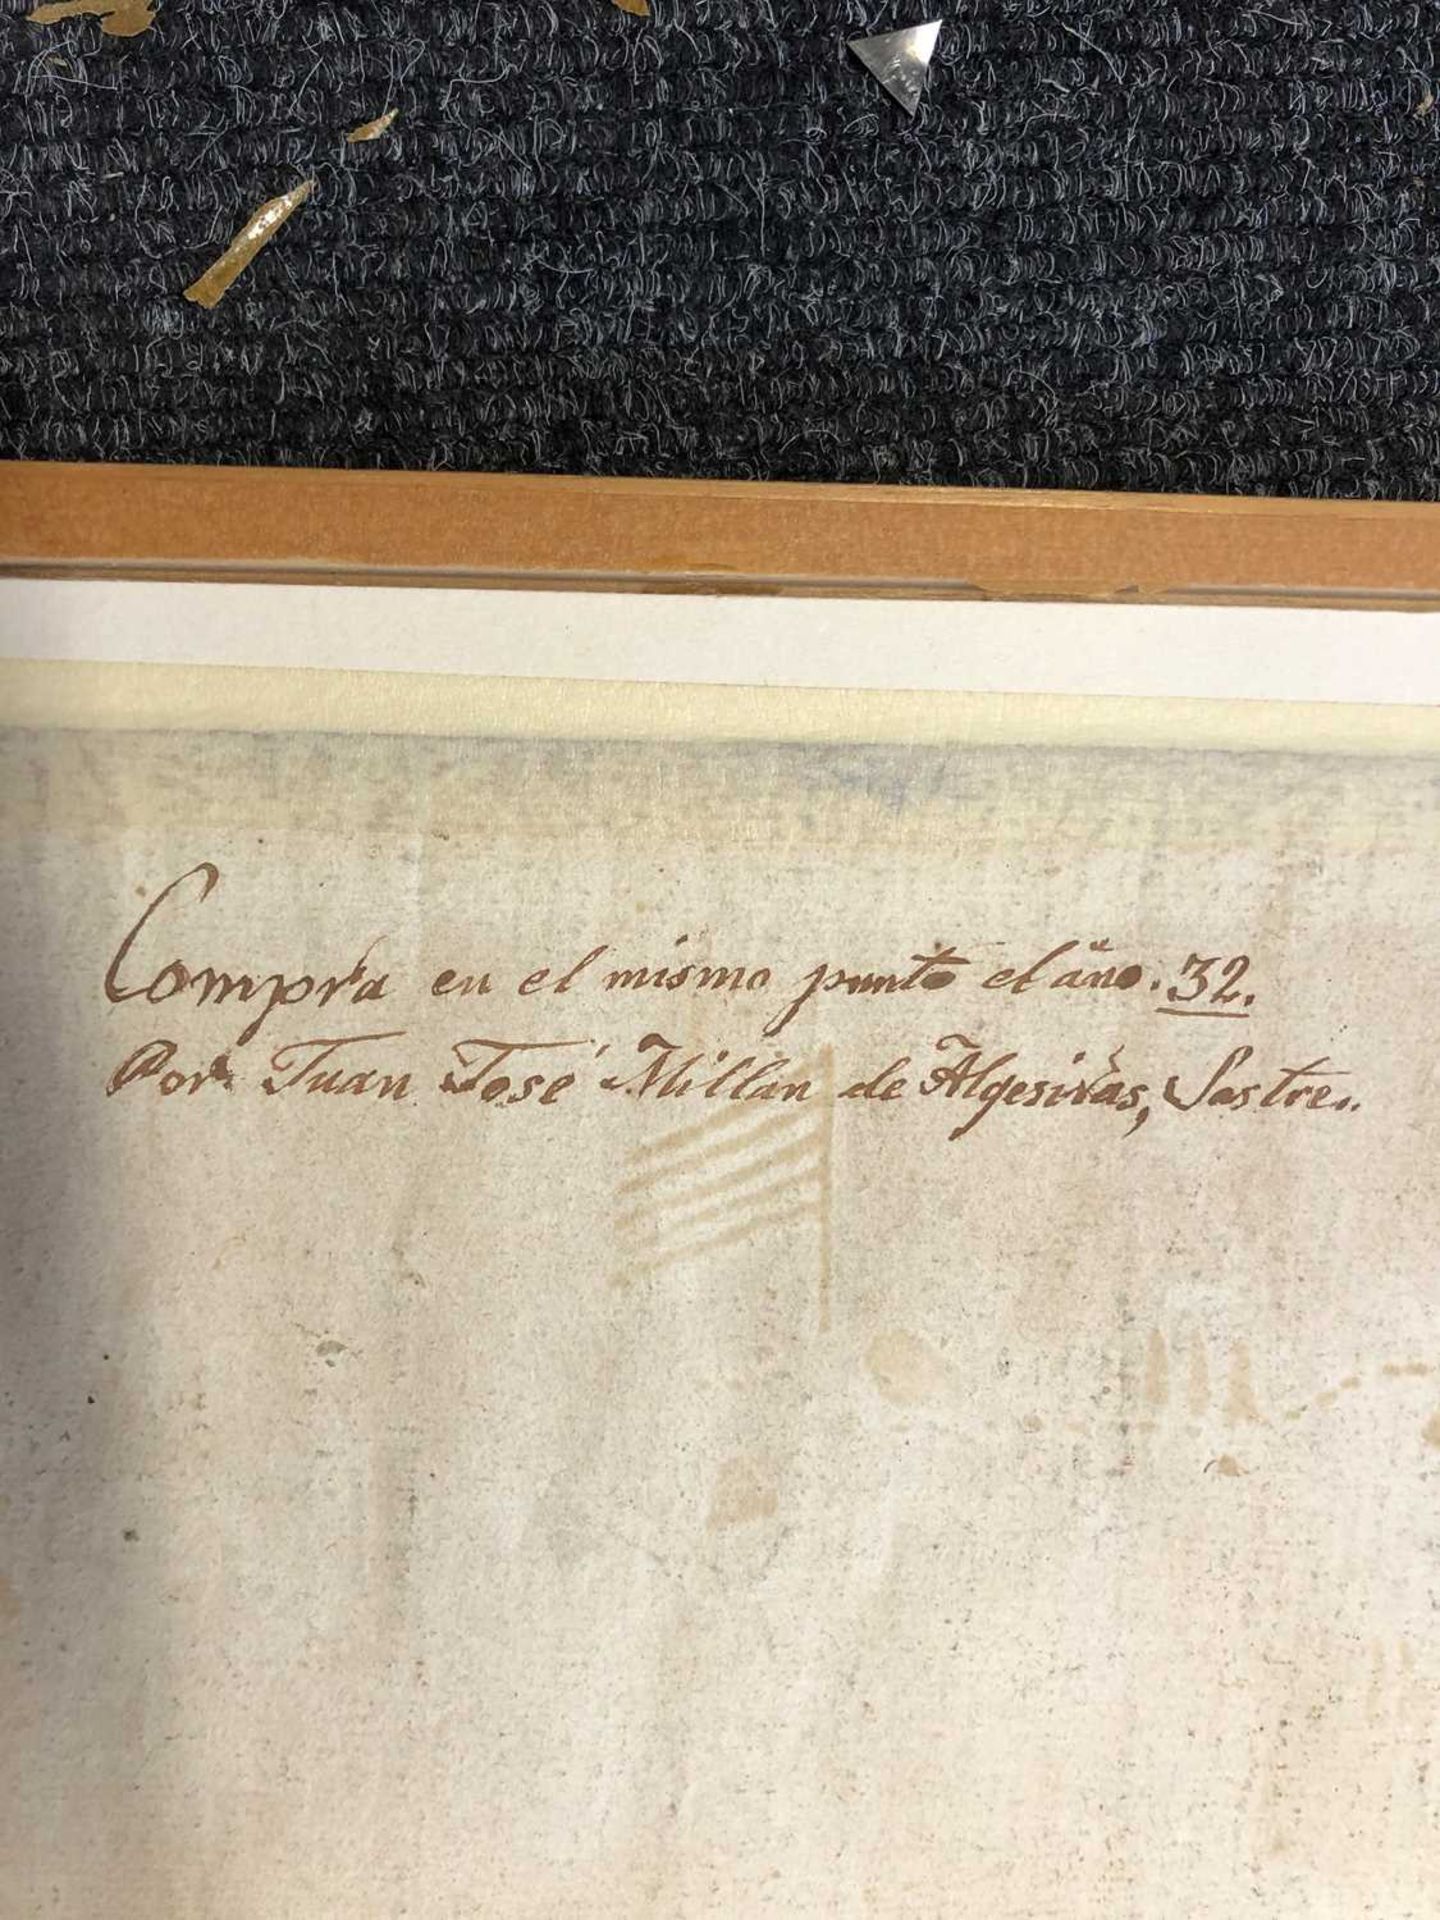 Compra en el mismo punto el año. 32.
Por Juan José Millan de Algesiras, Sastre..